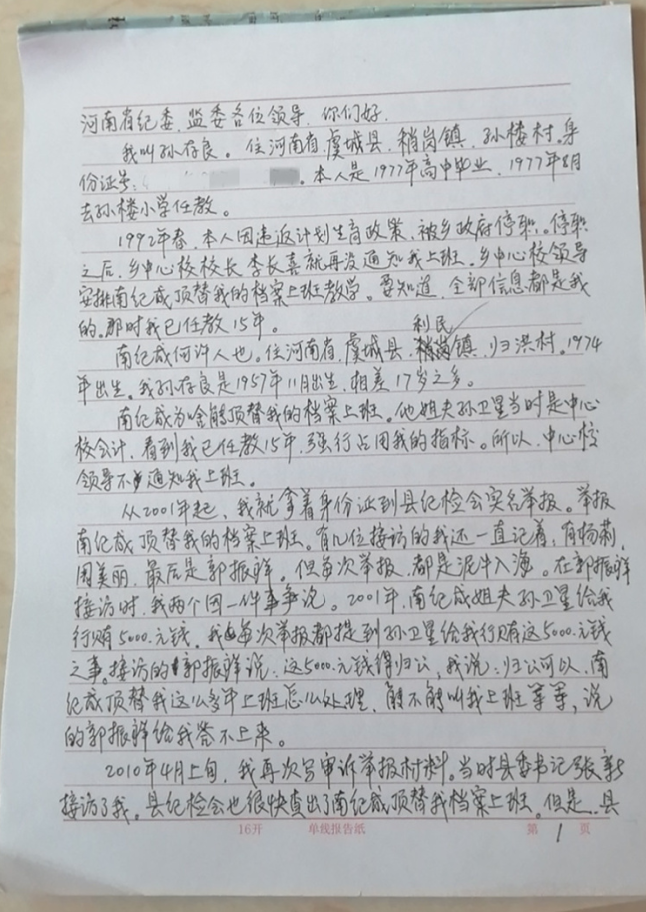 河南省纪委、监委各位领导、你们好.
我叫孙存良。住河南省.虞城县.稍岗镇.孙楼村.身
份证号: . 本人是1977年高中毕业.1977年8月
去孙楼小学任教。
1992年春.本人因违返计划生育政策、被乡政府停职。停职
之后.乡中心校校长李长喜就再没通知我上班.乡中心校领导
安排南纪成顶替我的档案上班教学。要知道.全部信息都是我
的.那时我已任教15年。
利民
南纪成何许人也。住河南省.虞城县.稍岗镇.归洪村.1974
年出生。我孙存良是1957年11月出生.相差17岁之多。
南纪成为啥能顶替我的档案上班。他姐夫孙卫星当时是中心
校会计.看到我已任教15年.强行占用我的指标。所以.中心校
领导不通知我上班。
从2001年起.我就拿着身份证到县纪检会实名举报。举报
南纪成顶替我的档案上班。有几位接访的我还一直记着,有杨莉,
周美丽.最后是郭振锋。但每次举报.都是泥牛入海。在郭振锋
接访时.我两个因一件事争说。2001年.南纪成姐夫孙卫星给我
行贿5000.元钱.我每次举报都提到孙卫星给我行贿这5000.元钱
之事.接访的郭振锋说:这5000.元钱得归公,我说:归公可以.南
纪成顶替我这么多年上班怎么处理.能不能叫我上班等等,说
的郭振锋给我答不上来。
2010年4月上旬.我再次写申诉举报材料。当时县委书记张
接访了我。县纪检会也很快查出了南纪成顶替我档案上班。但是..县
16开 单线报告纸 第 1 页